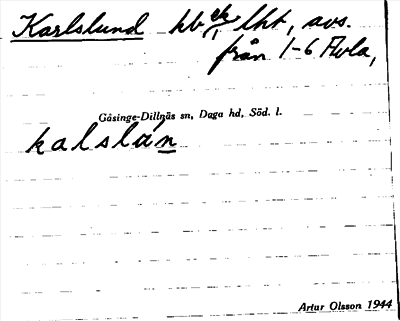 Karlslund hb el. lht, avs.
från 1-6 Avla,
Gåsinge-Dillnäs sn, Daga hd, Söd. l.
kalslun
Artur Olsson 1944